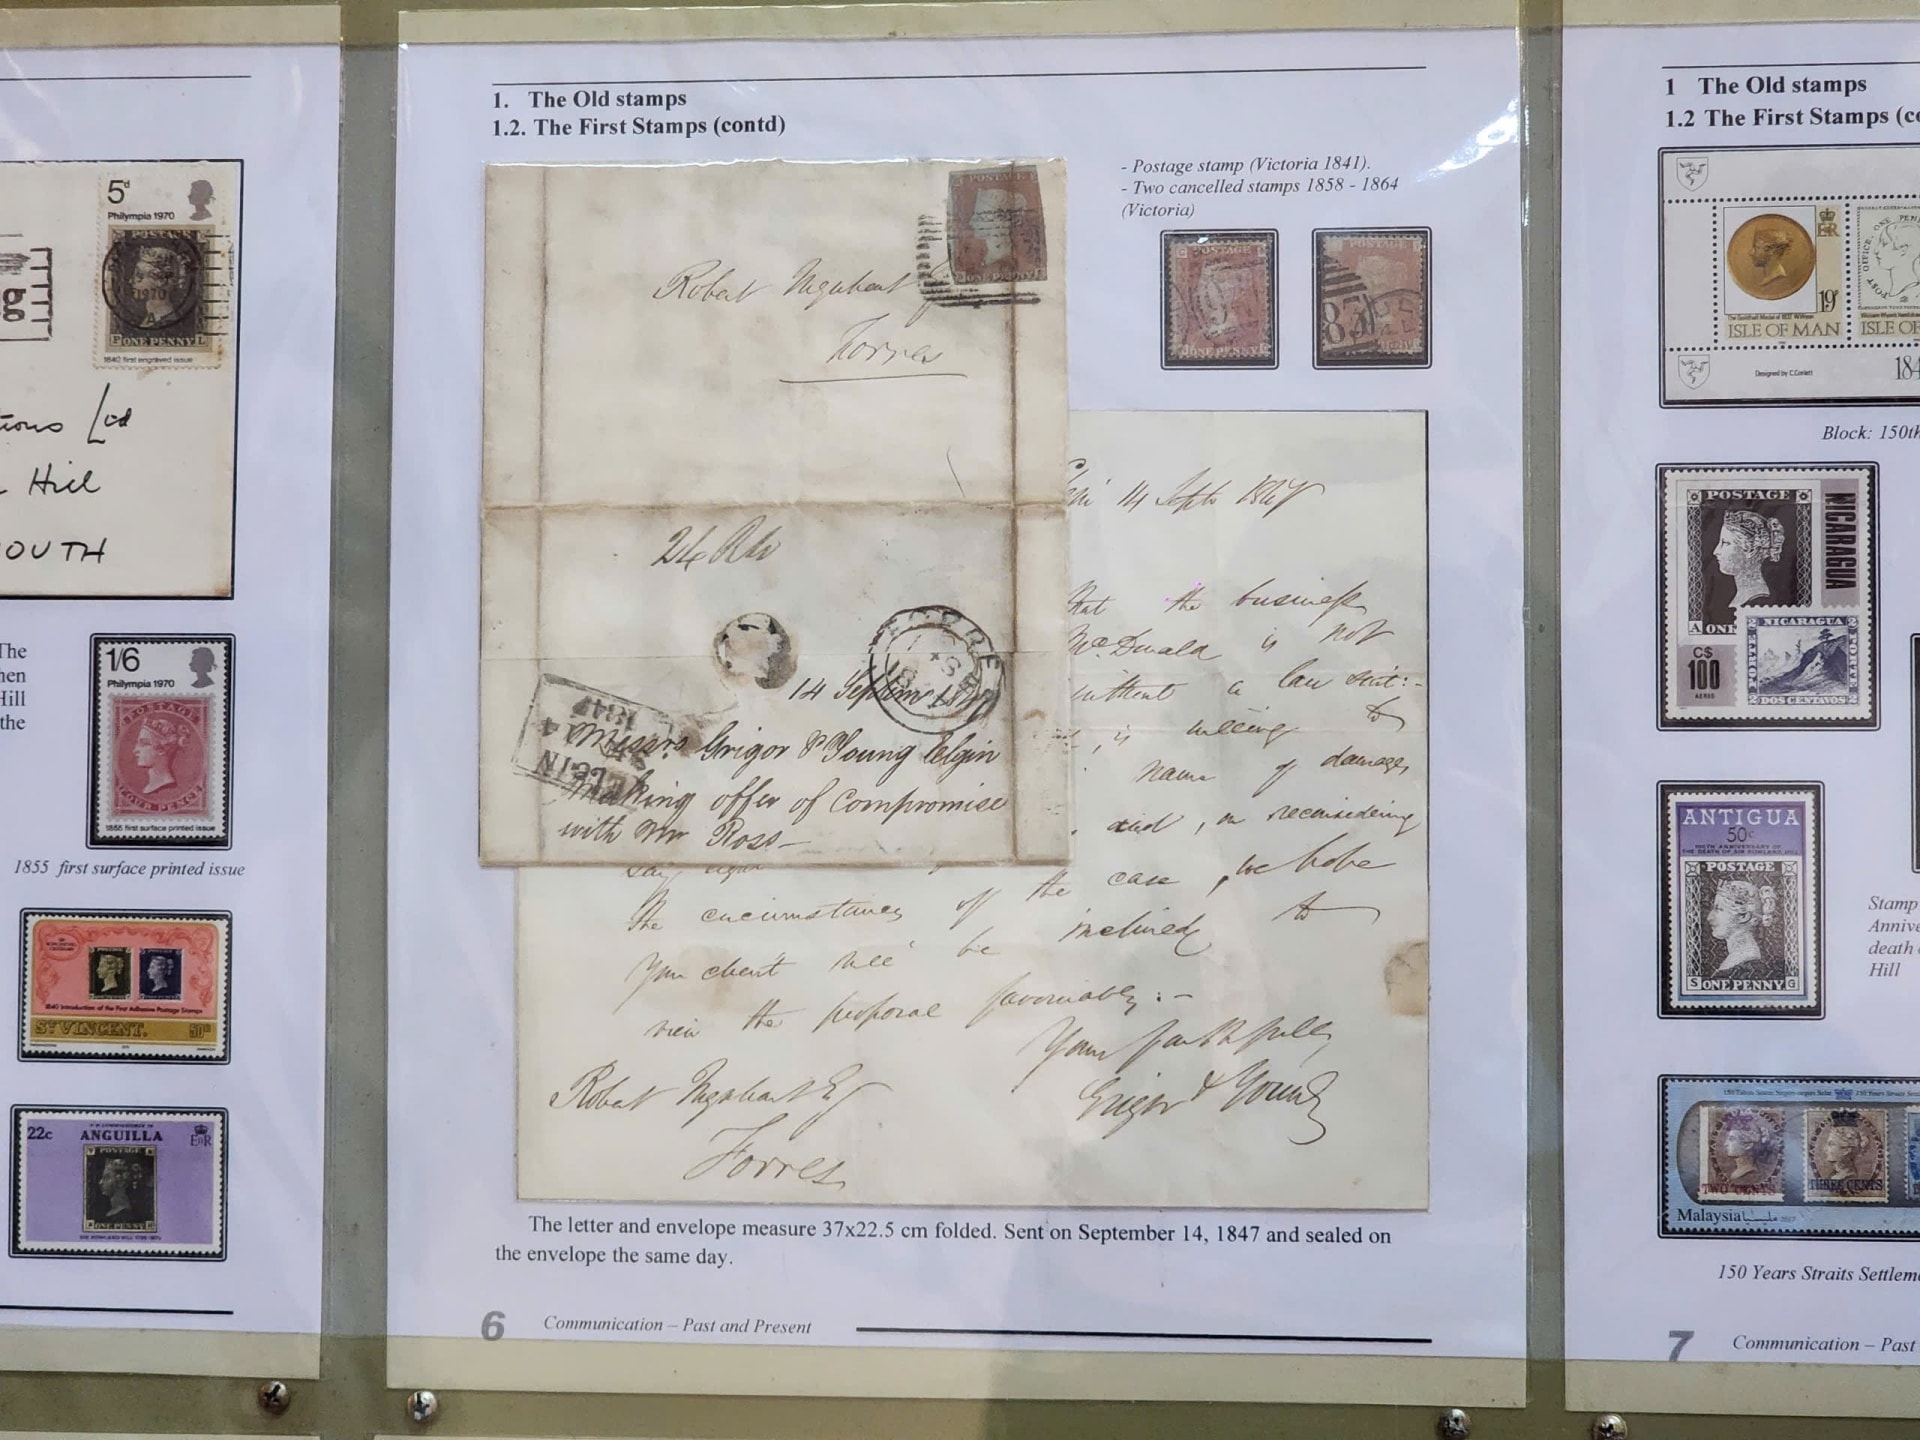 5d
Philympia 1970
POSTAGE
1970
A
P ONE PENNY L
1840 first engraved issue
g
tions Ltd
Hill
OUTH
The
hen
Hill
the
1/6
Philympia 1970
POSTAGE
FOUR PENCE
1855 first surface printed issue
1855 first surface printed issue
1840 Introduction of the First Adhesive Postage Stamps
ST VINCENT.
50c
22c
ANGUILLA
POSTAGE
ONE PENNY
SIR ROWLAND HILL 1795-1879
1. The Old stamps
1.2. The First Stamps (contd)
- Postage stamp (Victoria 1841).
- Two cancelled stamps 1858 - 1864
(Victoria)
POSTAGE
ONE PENNY
Robert
Forres
POSTAGE
ONE PENNY
POSTAGE
83
14 Septr 1847
that the business
McDonald is not
without a law suit:-
, is willing to
name of damages
and, on reconsidering
the circumstances of the case, we hope
Your client will be inclined to
view the proposal favourably:-
Yours faithfully
Grigor & Young
Robert
Forres
24
FORRES
14
ELGIN
1847
Messrs. Grigor & Young Elgin
Making offer of compromise
with Mr Ross—
The letter and envelope measure 37x22.5 cm folded. Sent on September 14, 1847 and sealed on
the envelope the same day.
6 Communication – Past and Present
1 The Old stamps
1.2 The First Stamps (co
19p
ISLE OF MAN
ISLE OF
Designed by C.Corlett
184
Block: 150th
POSTAGE
NICARAGUA
A ONE
C$
100
AEREO
NICARAGUA
PORTE
DOS CENTAVOS
ANTIGUA
50c
100TH ANNIVERSARY OF
THE DEATH OF SIR ROWLAND HILL
POSTAGE
S ONE PENNY G
Stamp
Annive
death o
Hill
TWO CENTS
THREE CENTS
Malaysia
150 Years Straits Settleme
7 Communication – Past